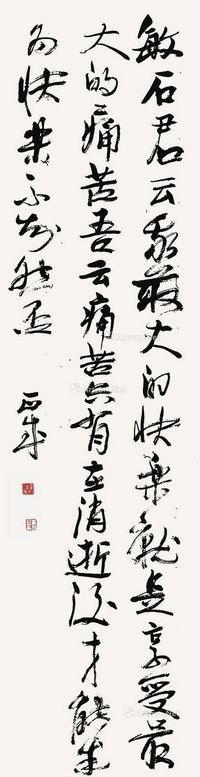 敏石君云我最大的快乐就是享受最
大的痛苦吾云痛苦只有在消逝后才能成
为快乐不知然否